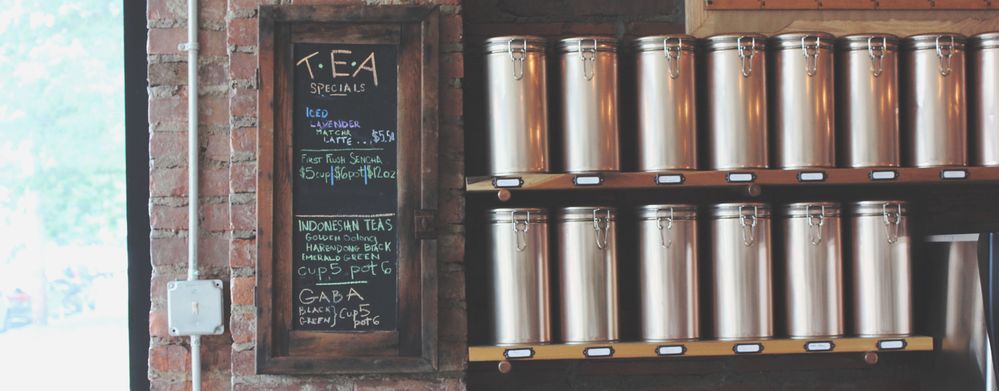 T·E·A
SPECIALS
ICED
LAVENDER
MATCHA
LATTE ... $5.50
FIRST FLUSH SENCHA
$5cup|$6pot|$12oz
INDONESIAN TEAS
GOLDEN OOLONG
HARENDONG BLACK
EMERALD GREEN
CUP 5 POT 6
GABA
BLACK } CUP 5
GREEN } POT 6